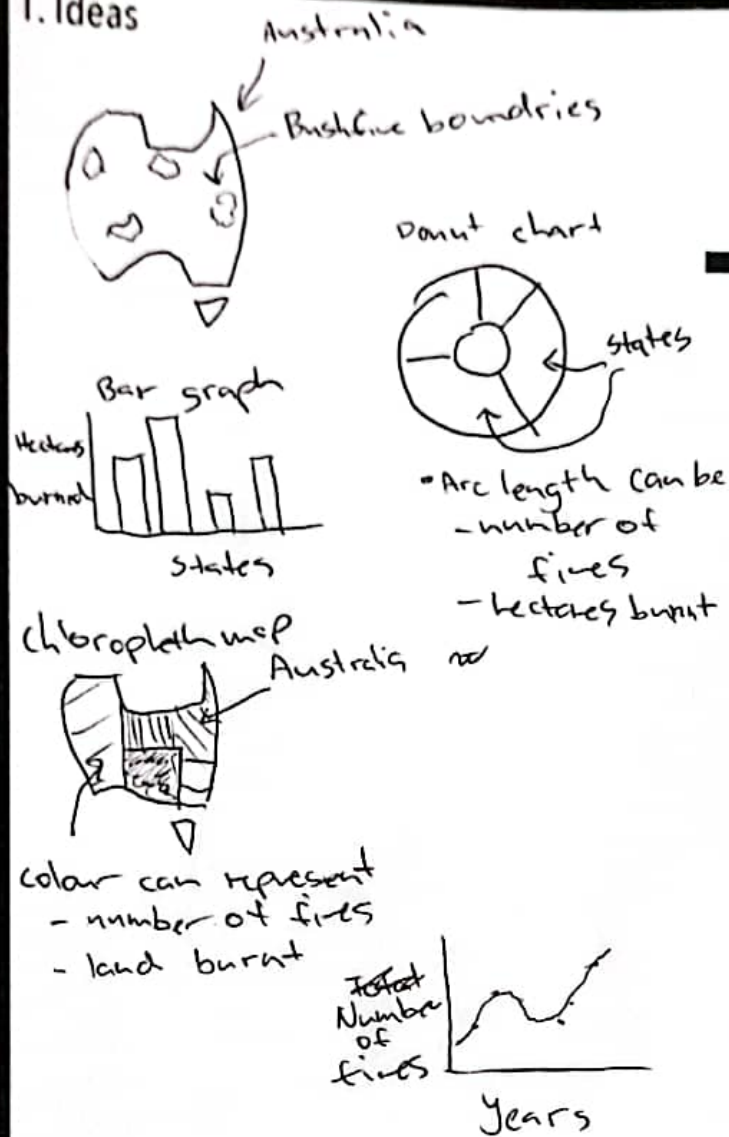 1. Ideas
Australia
Bushfire boundries
Donut chart
states
Bar graph
Hectares
burned
States
• Arc length can be
- number of
fires
- hectares burnt
Chloropleth map
Australia
colour can represent
- number of fires
- land burnt
Total
Number
of
fires
Years